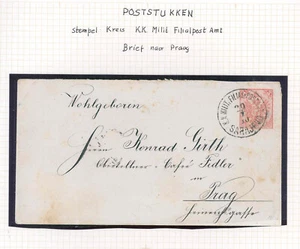 POSTSTUKKEN
stempel Kreis K.K. Milit Filialpost Amt
Brief naar Praag
Wohlgeboren
Herrn Konrad Girth
Oberkellner in Cafee Fidler
in
Prag
Heinrichsgasse